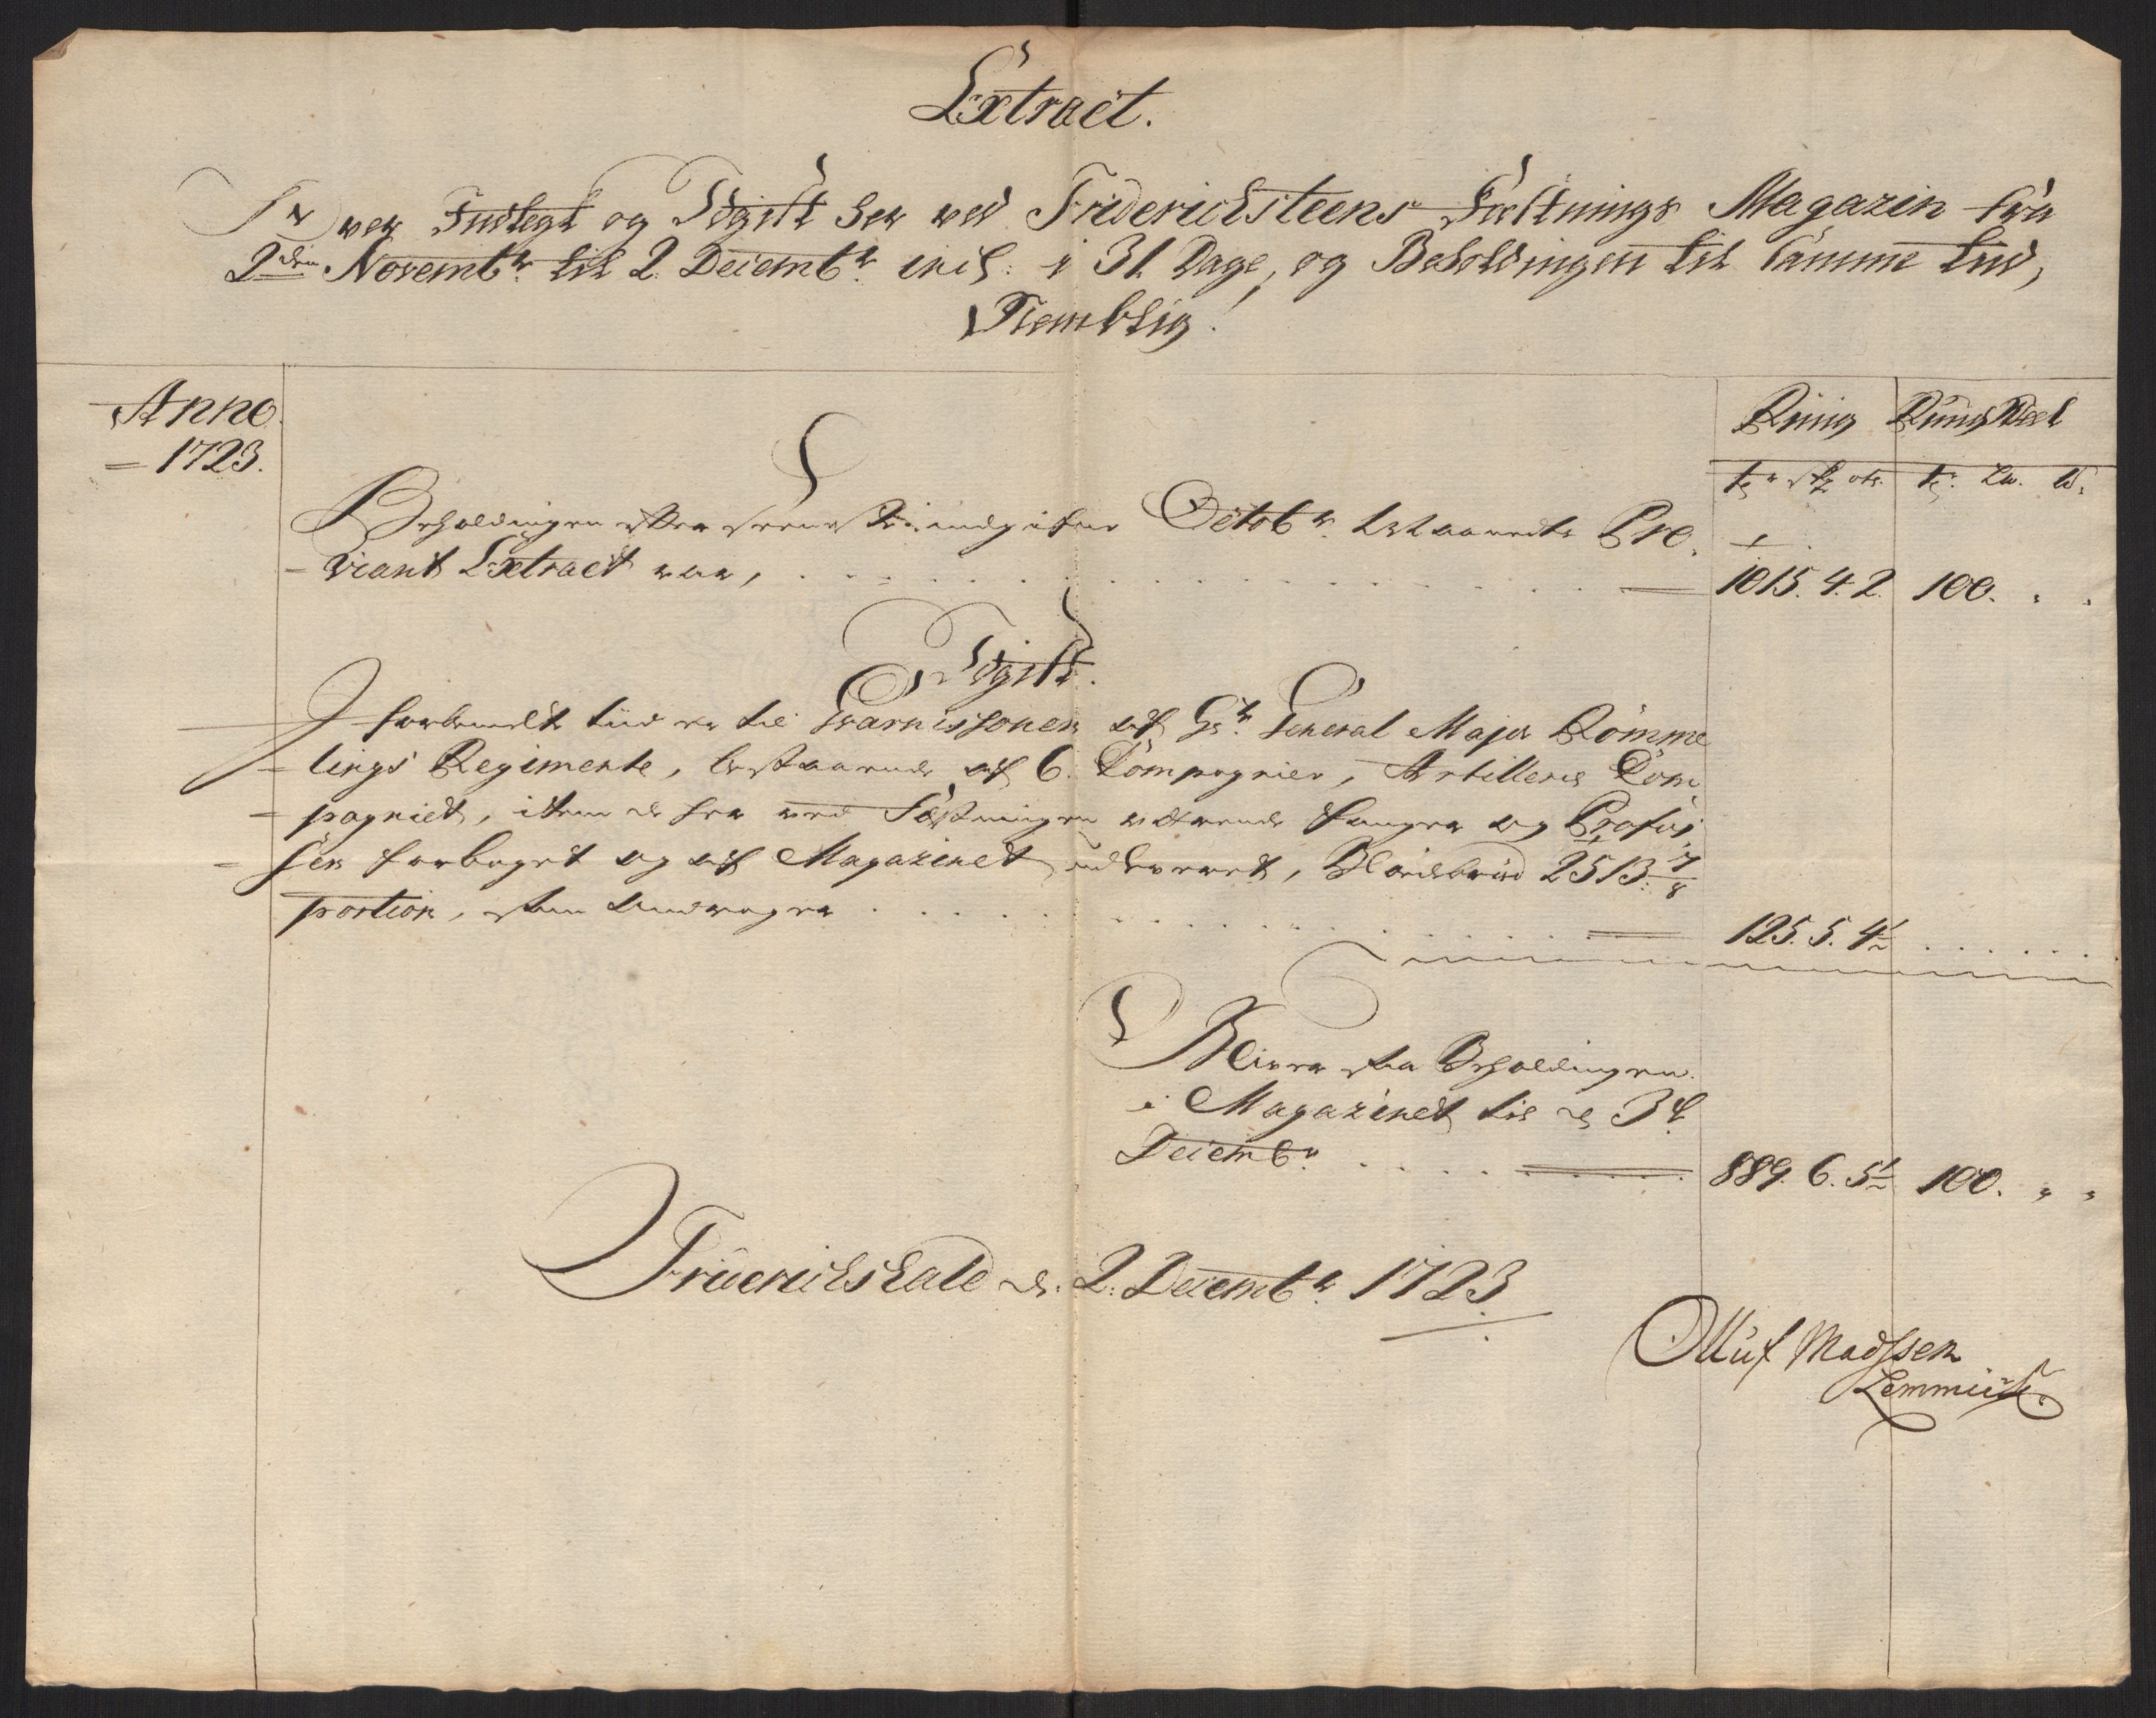 Extract.
Over Indtegt og Udgift her ved Friderichsteens Fæstnings Magazin fra
2den Novembr. til 2 Decembr. incl: i 31 Dage, og Beholdningen til samme tid,
Nemblig!
Anno
1723.
Rüug Rüug Meel
tr. skp otr. tr. Lw. w.
Beholdningen efter seeneste indgifne Octobr. Maaneds Pro-
viant Extract var, 1015. 4. 2. 100. " "
Udgift.
I forbemelte tiid er til Guarnissonen af Hr. General Major Römme
lings Regimente, bestaaende af 6. Compagnier, Artillerie Com-
pagniet, item de her ved Fæstningen værende fanger og Profos-
sen forbaget og af Magazinet udleveret, Haardbrød 2513 7/8
portion, som andrager 125. 5. 4½
Bliver saa Beholdningen
i Magazinet til d. 3d.
Decembr. 889. 6. 5½ 100. " "
Friderichshald d. 2. Decembr. 1723
Olluf Madssen
Lemmich